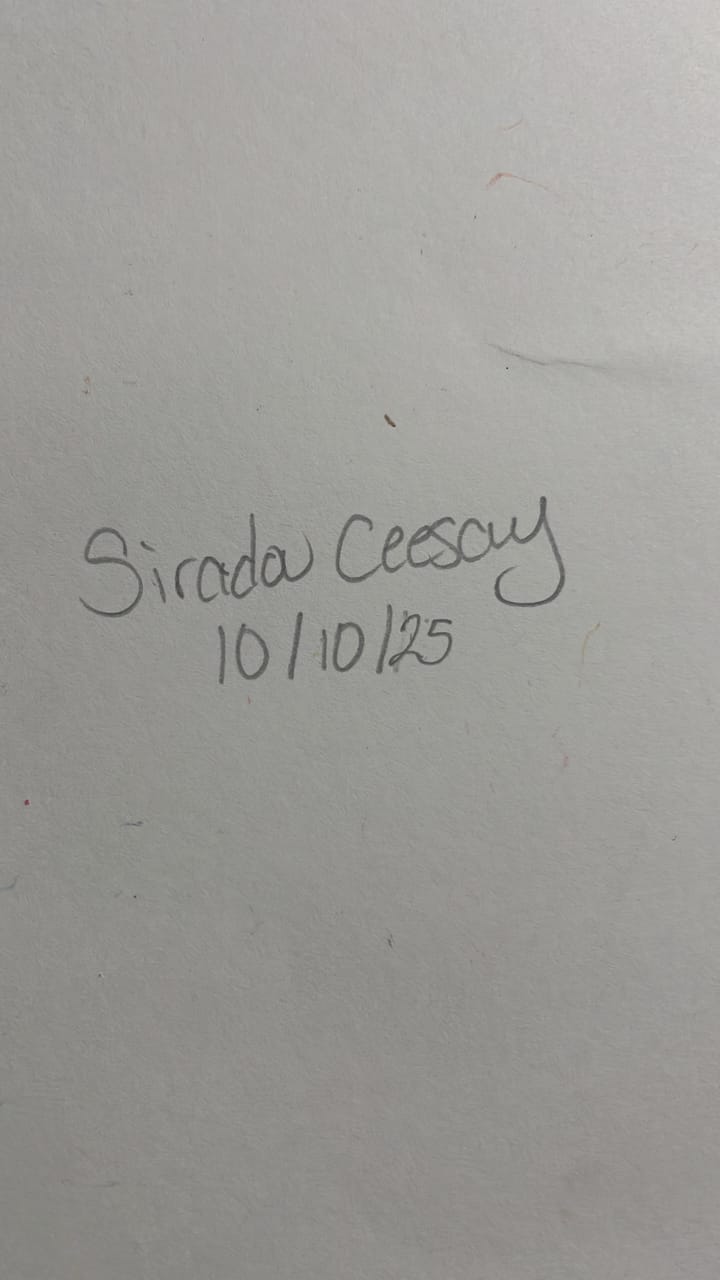 Sirada Ceesay
10/10/25